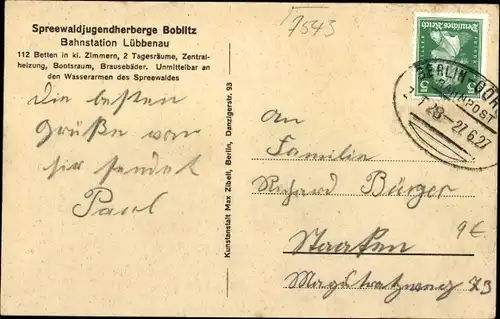 Spreewaldjugendherberge Boblitz
Bahnstation Lübbenau
112 Betten in kl. Zimmern, 2 Tagesräume, Zentral-
heizung, Bootsraum, Brausebäder. Unmittelbar an
den Wasserarmen des Spreewaldes
Die besten
Grüße von
hir sendet
Paul
Kunstanstalt Max Zibell, Berlin, Danzigerstr. 93
7543
Deutsches Reich
5
5
BERLIN
BAHNPOST
27.6.27
An
Familie
Richard Bürger
Staaken
9€